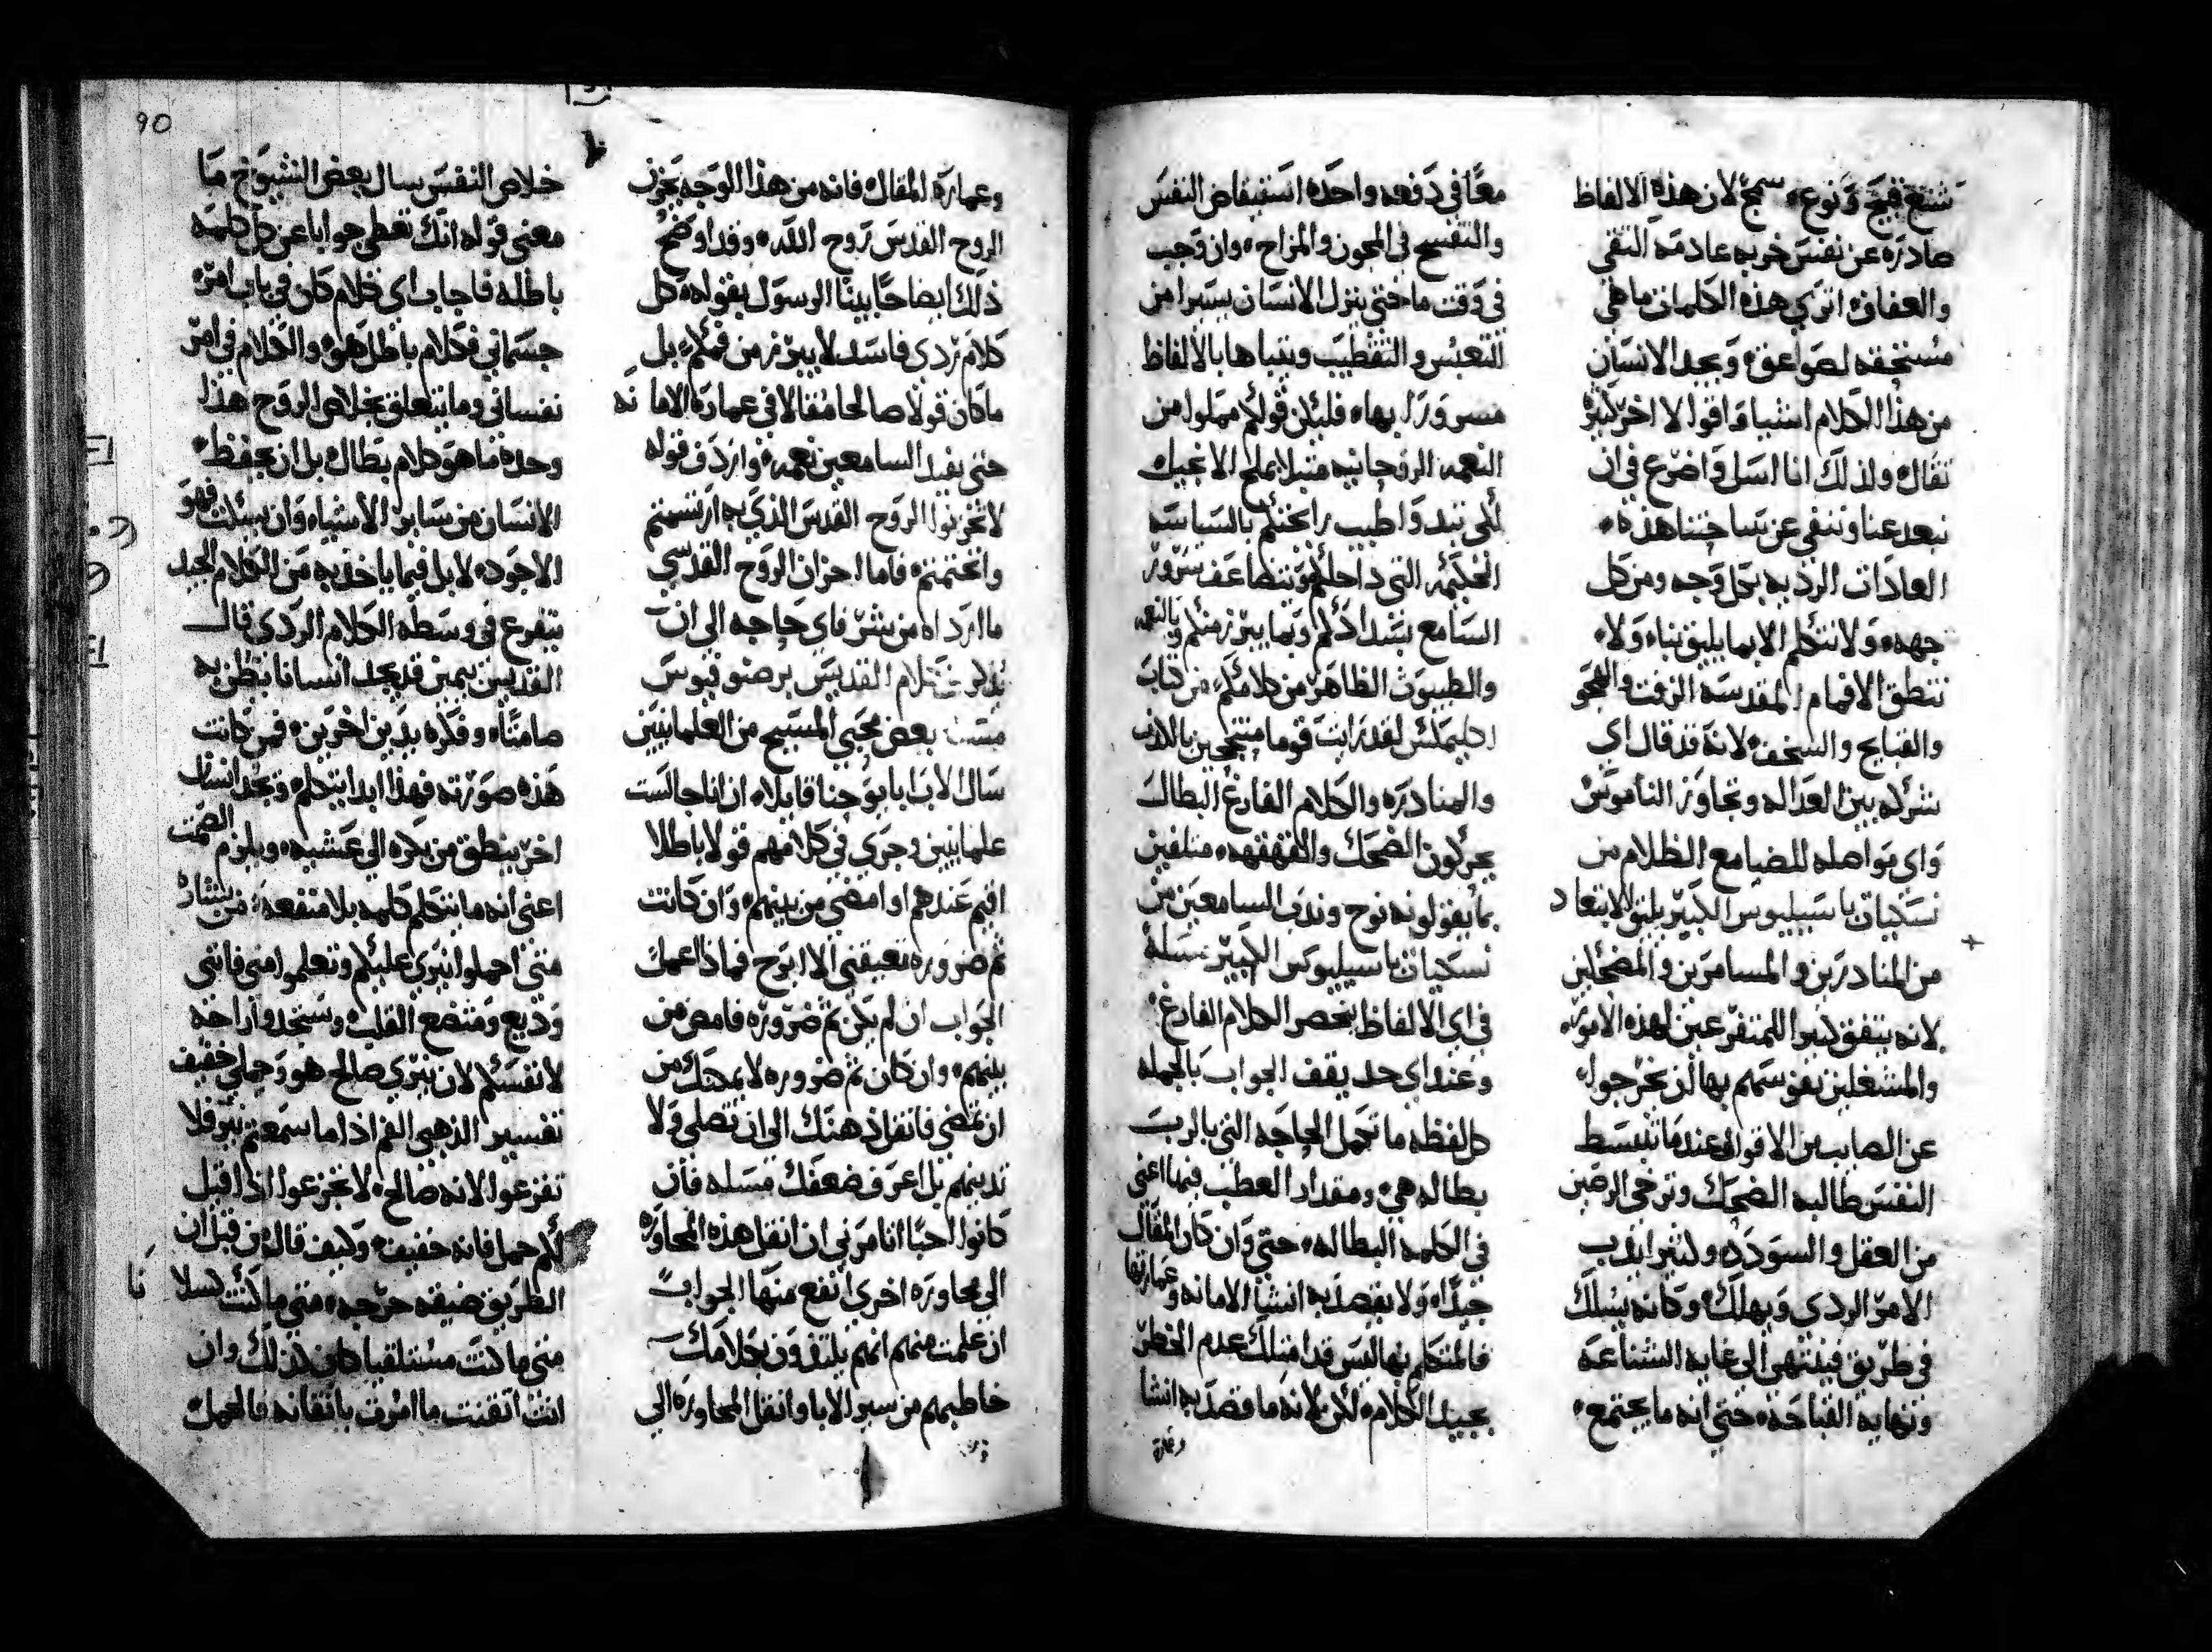 شنع قبيح ونوع سمج لان هذه الالفاظ
صادره عن نفس خربه عادمه التقي
والعفاف اتري هذه الكلمات ما هي
مستحقه لصواعق وبجد الانسان
من هذا الكلام اشيا واقوالا اخر كثيره
تقال ولذلك انا اسل واضرع في ان
نبعد عنا وننفي عن ساحتنا هذه
العادات الرديه بكل وجه ومن كل
جهه ولا نتكلم الا بما يليق بنا ولا
تنطق الافمام المقدسه الزفت والهجو
والقبايح والسخف لانه قد قال اي
شركه بين العداله وتجاوز الناموس
واي مواصله للضيا مع الظلام من
نسكيات باسيليوس الكبير يليق الابتعاد
من المنادرين والمسامرين والمضحكين
لانه يتفق كثيرا للمتفرغين لهذه الامور
والمشغلين نفوسهم بها ان يخرجوا
عن الصايب من الاقوال عندما تنبسط
النفس طالبه الضحك وترخي الرصين
من العقل والسودد وكثيرا يدب
الامر الردي ويهلك وكانه يسلك
في طريق فينتهي الي غايه الشناعه
ونهايه القباحه حتي انه ما يجتمع
معا في دفعه واحده استيقاض النفس
والتفسح في المجون والمزاح وان وجب
في وقت ما حتي ينزل الانسان يسيرا من
التعبس والتقطيب ويقباها بالالفاظ
مسرورا بها فليكن قولكم مملوا من
النعمه الروحانيه متبلا بملح الانجيل
لكي تبد واطيب رايحتكم بالسياسه
الحكيمه التي داخلكم وتتضاعف سرور
السامع بشداكم وبما يبرز منكم وبالنعمه
والطيبوث الظاهر من كلامكم من كتاب
اكليمكس لقد رايت قوما متبجحين بالكذب
والمنادره والكلام الفارغ البطال
يحركون الضحك والقهقهه متلفين
بما يقولونه نوح وندب السامعين من
نسكيات باسيليوس الكبير مسله
في اي الالفاظ يحصر الكلام الفارغ
وعند اي حد يقف الجواب بالجمله
كل لفظه ما تكمل الحاجه التي بالرب
بطاله هي ومقدار العطب فيها اعني
في الكلمه البطاله حتي وان كان المقال
جيدا ولا يقصد به انشا الامانه وعمارتها
فالمتكلم بها ليس قد امتلك عدم الخطر
بجيد الكلام لكن لانه ما قصد به انشا
وعمارة
وعماره المقال فانه من هذا الوجه يحزن
الروح القدس روح الله وقد اوضح
ذلك ايضاحا بينا الرسول بقوله كل
كلام ردي فاسد لا يبرز من فمكم بل
ما كان قولا صالحا مقالا في عمارة الامانه
حتي يفد السامعين نعمه واردف قوله
لا تحزنوا الروح القدس الذي به ارتسمتم
وانختمتم فاما احزان الروح القدسي
ما اردا منه بشر فاي حاجه الي ان
نذكر كلام القديس برصنوفيوس
بعض محبي المسيح من العلمانيين
سال الاب ابا يوحنا قايلا ان انا جالست
علمانيين وجري في كلامهم قولا باطلا
اقيم عندهم او امضي من بينهم وان كانت
ثم ضروره تعيقني الا ابرح فماذا اعمل
الجواب ان لم يكن ثم ضروره فامض من
بينهم وان كان ثم ضروره لا يمكنك من
ان تمضي فانقل ذهنك الي ان تصلي ولا
تدينهم بل اعرف ضعفك مسله فان
كانوا احبا اتامرني ان انقل هذه المحاوره
الي محاوره اخري انفع منها الجواب
ان علمت منهم انهم يلتفون بكلامك
خاطبهم من سير الابا وانقل المحاوره الي
خلاص النفس سال بعض الشيوخ ما
معني قوله انك تعطي جوابا عن كل كلمه
باطله فاجاب اي كلام كان في باب امر
جسماني فكلام باطل هو والكلام في امر
نفساني وما يتعلق بخلاص الروح هذا
وحده ما هو كلام بطال بل ان يحفظ
الانسان من ساير الاشياء وان سكت فهو
الاجود لا بل فيما ياخذ به من الكلام الجيد
يتفرع في وسطه الكلام الردي قال
القديس بيمين قد يجد انسانا يظن به
صامتا وفكره يدين اخرين فمن كانت
هذه صورته فهذا ابدا يتكلم وتجد انسان
اخر ينطق من بكره الي عشيه ويلزم الصمت
اعني انه ما يتكلم كلمه بلا منفعه من بشاره
متي احملوا نيري عليكم وتعلموا مني فاني
وديع ومتضع القلب وستجدوا راحه
لانفسكم لان نيري صالح هو وحملي خفيف
تفسير الذهبي الفم اذا ما سمعتم نير فلا
تفزعوا لانه صالح لا تجزعوا اذا قيل
لكم حمل فانه خفيف وكيف قال من قبل ان
الطريق ضيقه حرجه متي ما كنت كسلانا
متي ما كنت مستلقيا كان كذلك وان
انت اتقنت ما امرت باتقانه فالحمل
90